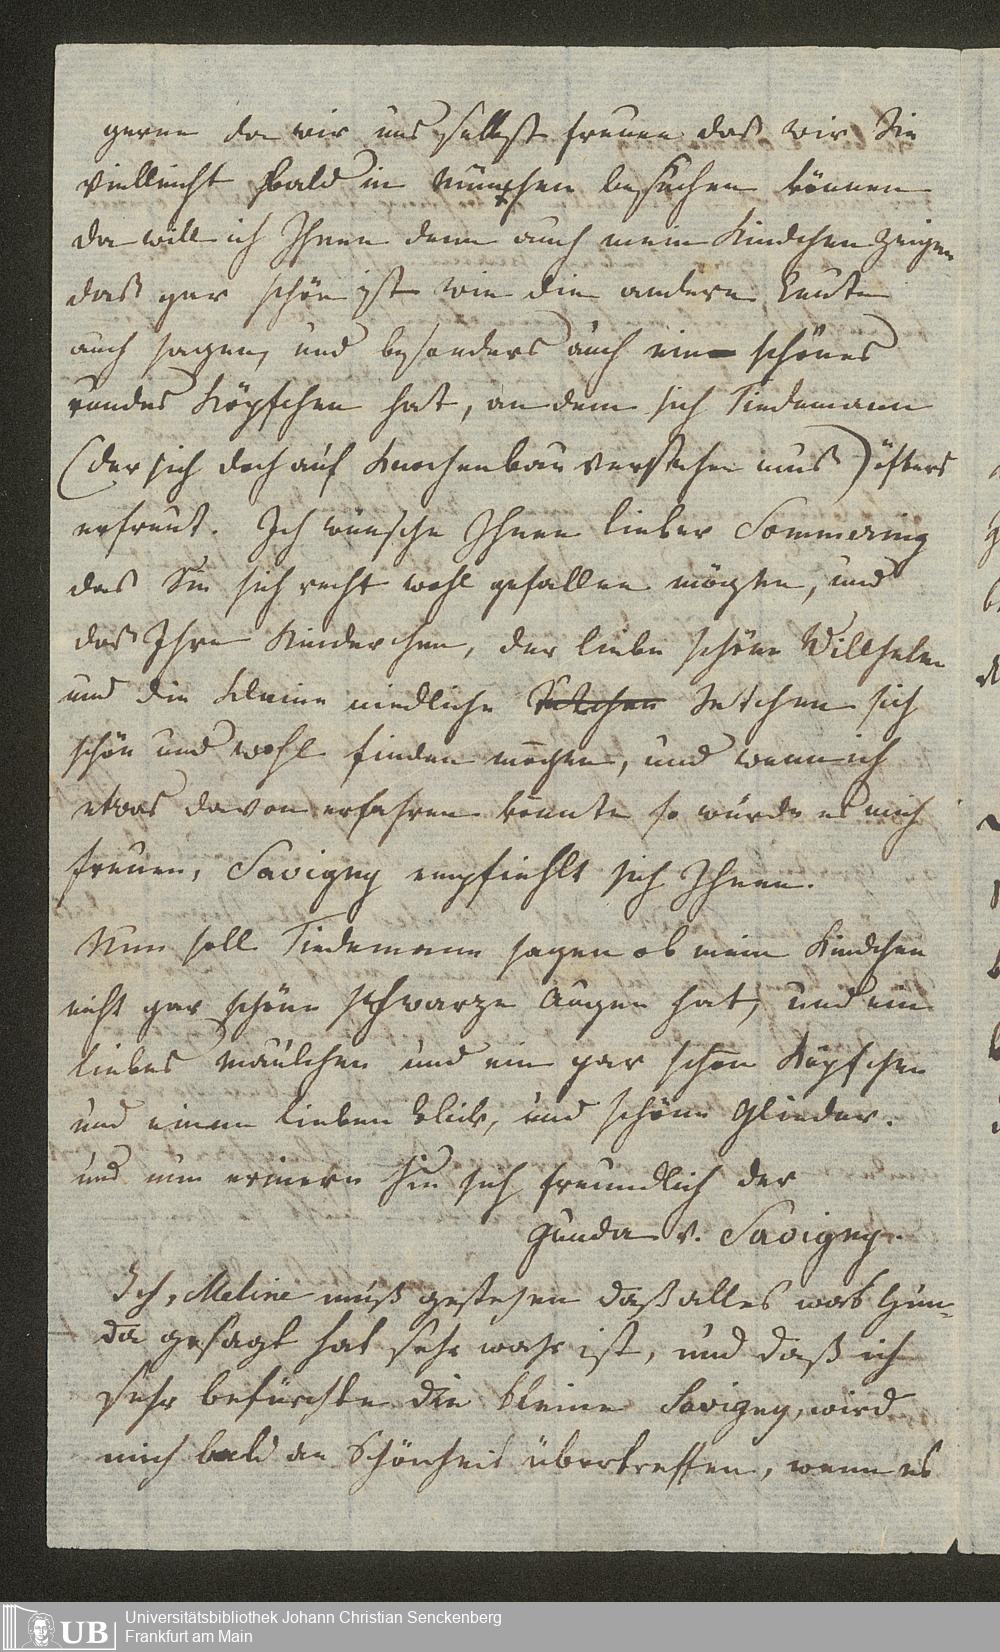 gerne da wir uns selbst freuen das wir Sie
vielleicht bald in München besuchen können
da will ich Ihnen denn auch mein Kindchen zeigen
daß gar schön ist wie die andern Leute
auch sagen, und besonders auch ein schönes
rundes Köpfchen hat, an dem sich Tiedemann
(der sich doch auf Knochenbau verstehen mus) öfters
erfreut. Ich wünsche Ihnen lieber Sömmering
das Sie sich recht wohl gefallen mögten, und
das Ihre Kinderchen, der liebe schöne Willhelm
und die kleine niedliche Settchen sich
schön und wohl finden mögten, und wenn ich
etwas davon erfahren könnte so würde es mich
freuen, Savigny empfiehlt sich Ihnen.
Nun soll Tiedemann sagen ob mein Kindchen
nicht gar schöne schwarze Augen hat, und ein
liebes Mäulchen und ein gar schön Köpfchen
und einen lieben Blick, und schöne Glieder.
und nun erinern Sie sich freundlich der
Gunda v. Savigny.
Ich, Meline muß gestehen daß alles was Gun-
da gesagt hat sehr wahr ist, und daß ich
sehr befürchte die kleine Savigny, wird
mich bald an Schönheit übertreffen, wenn es
Universitätsbibliothek Johann Christian Senckenberg
Frankfurt am Main
UB